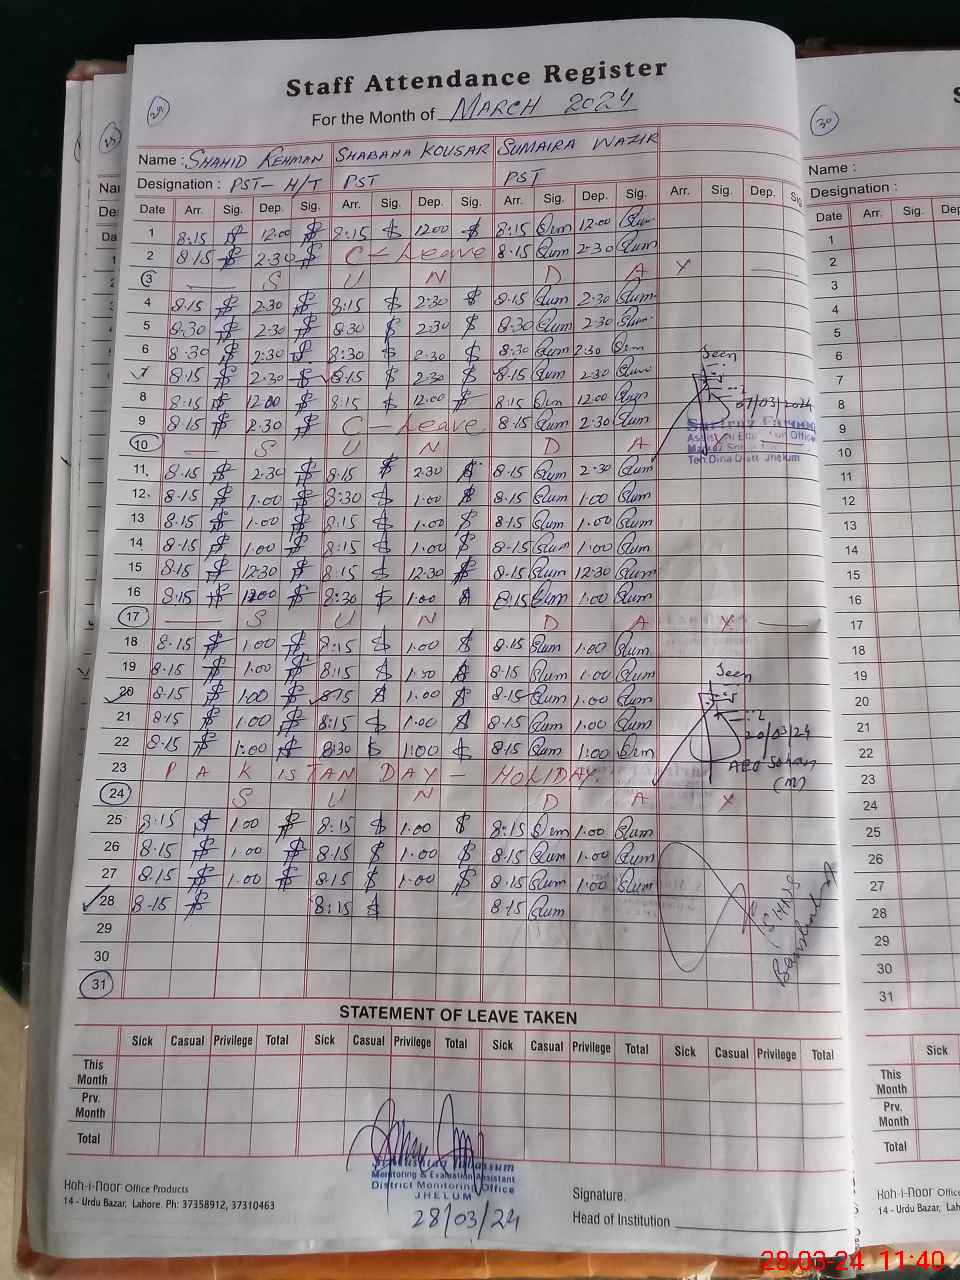 29
Staff Attendance Register
For the Month of MARCH 2024
Name : SHAHID REHMAN SHABANA KOUSAR SUMAIRA WAZIR
Designation : PST- H/T PST PST
Date Arr. Sig. Dep. Sig. Arr. Sig. Dep. Sig. Arr. Sig. Dep. Sig. Arr. Sig. Dep. Sig.
1 8:15 12:00 8:15 12:00 8:15 12:00
2 8:15 2:30 C-Leave 8:15 2:30
3 S U N D A Y
4 8:15 2:30 8:15 2:30 8:15 2:30
5 8:30 2:30 8:30 2:30 8:30 2:30
6 8:30 2:30 8:30 2:30 8:30 2:30
7 8:15 2:30 8:15 2:30 8:15 2:30
8 8:15 12:00 8:15 12:00 8:15 12:00
9 8:15 2:30 C-Leave 8:15 2:30
10 S U N D A Y
11 8:15 2:30 8:15 2:30 8:15 2:30
12 8:15 1:00 8:30 1:00 8:15 1:00
13 8:15 1:00 8:15 1:00 8:15 1:00
14 8:15 1:00 8:15 1:00 8:15 1:00
15 8:15 12:30 8:15 12:30 8:15 12:30
16 8:15 8:30 1:00 8:15 1:00
17 S U N D A Y
18 8:15 1:00 8:15 1:00 8:15 1:00
19 8:15 1:00 8:15 8:15 1:00
20 8:15 1:00 8:15 1:00 8:15 1:00
21 8:15 1:00 8:15 1:00 8:15 1:00
22 8:15 1:00 8:30 1:00 8:15 1:00
23 PAKISTAN DAY - HOLIDAY.
24 S U N D A Y
25 8:15 1:00 8:15 1:00 8:15 1:00
26 8:15 1:00 8:15 1:00 8:15 1:00
27 8:15 1:00 8:15 1:00 8:15 1:00
28 8:15 8:15 8:15
29
30
31
Seen
07/03/2024
Teh Dina Distt Jhelum
Seen
20/03/24
AEO Sohan
(M)
STATEMENT OF LEAVE TAKEN
Sick Casual Privilege Total Sick Casual Privilege Total Sick Casual Privilege Total Sick Casual Privilege Total
This Month
Prv. Month
Total
Monitoring & Evaluation Assistant
District Monitoring Office
JHELUM
28/03/24
Koh-i-Noor Office Products
14 - Urdu Bazar, Lahore. Ph: 37358912, 37310463
Signature.
Head of Institution
30
S
Name :
Designation :
Date Arr. Sig. Dep
1
2
3
4
5
6
7
8
9
10
11
12
13
14
15
16
17
18
19
20
21
22
23
24
25
26
27
28
29
30
31
Sick
This Month
Prv. Month
Total
Koh-i-Noor Office
14 - Urdu Bazar, Lahore.
28-03-24 11:40